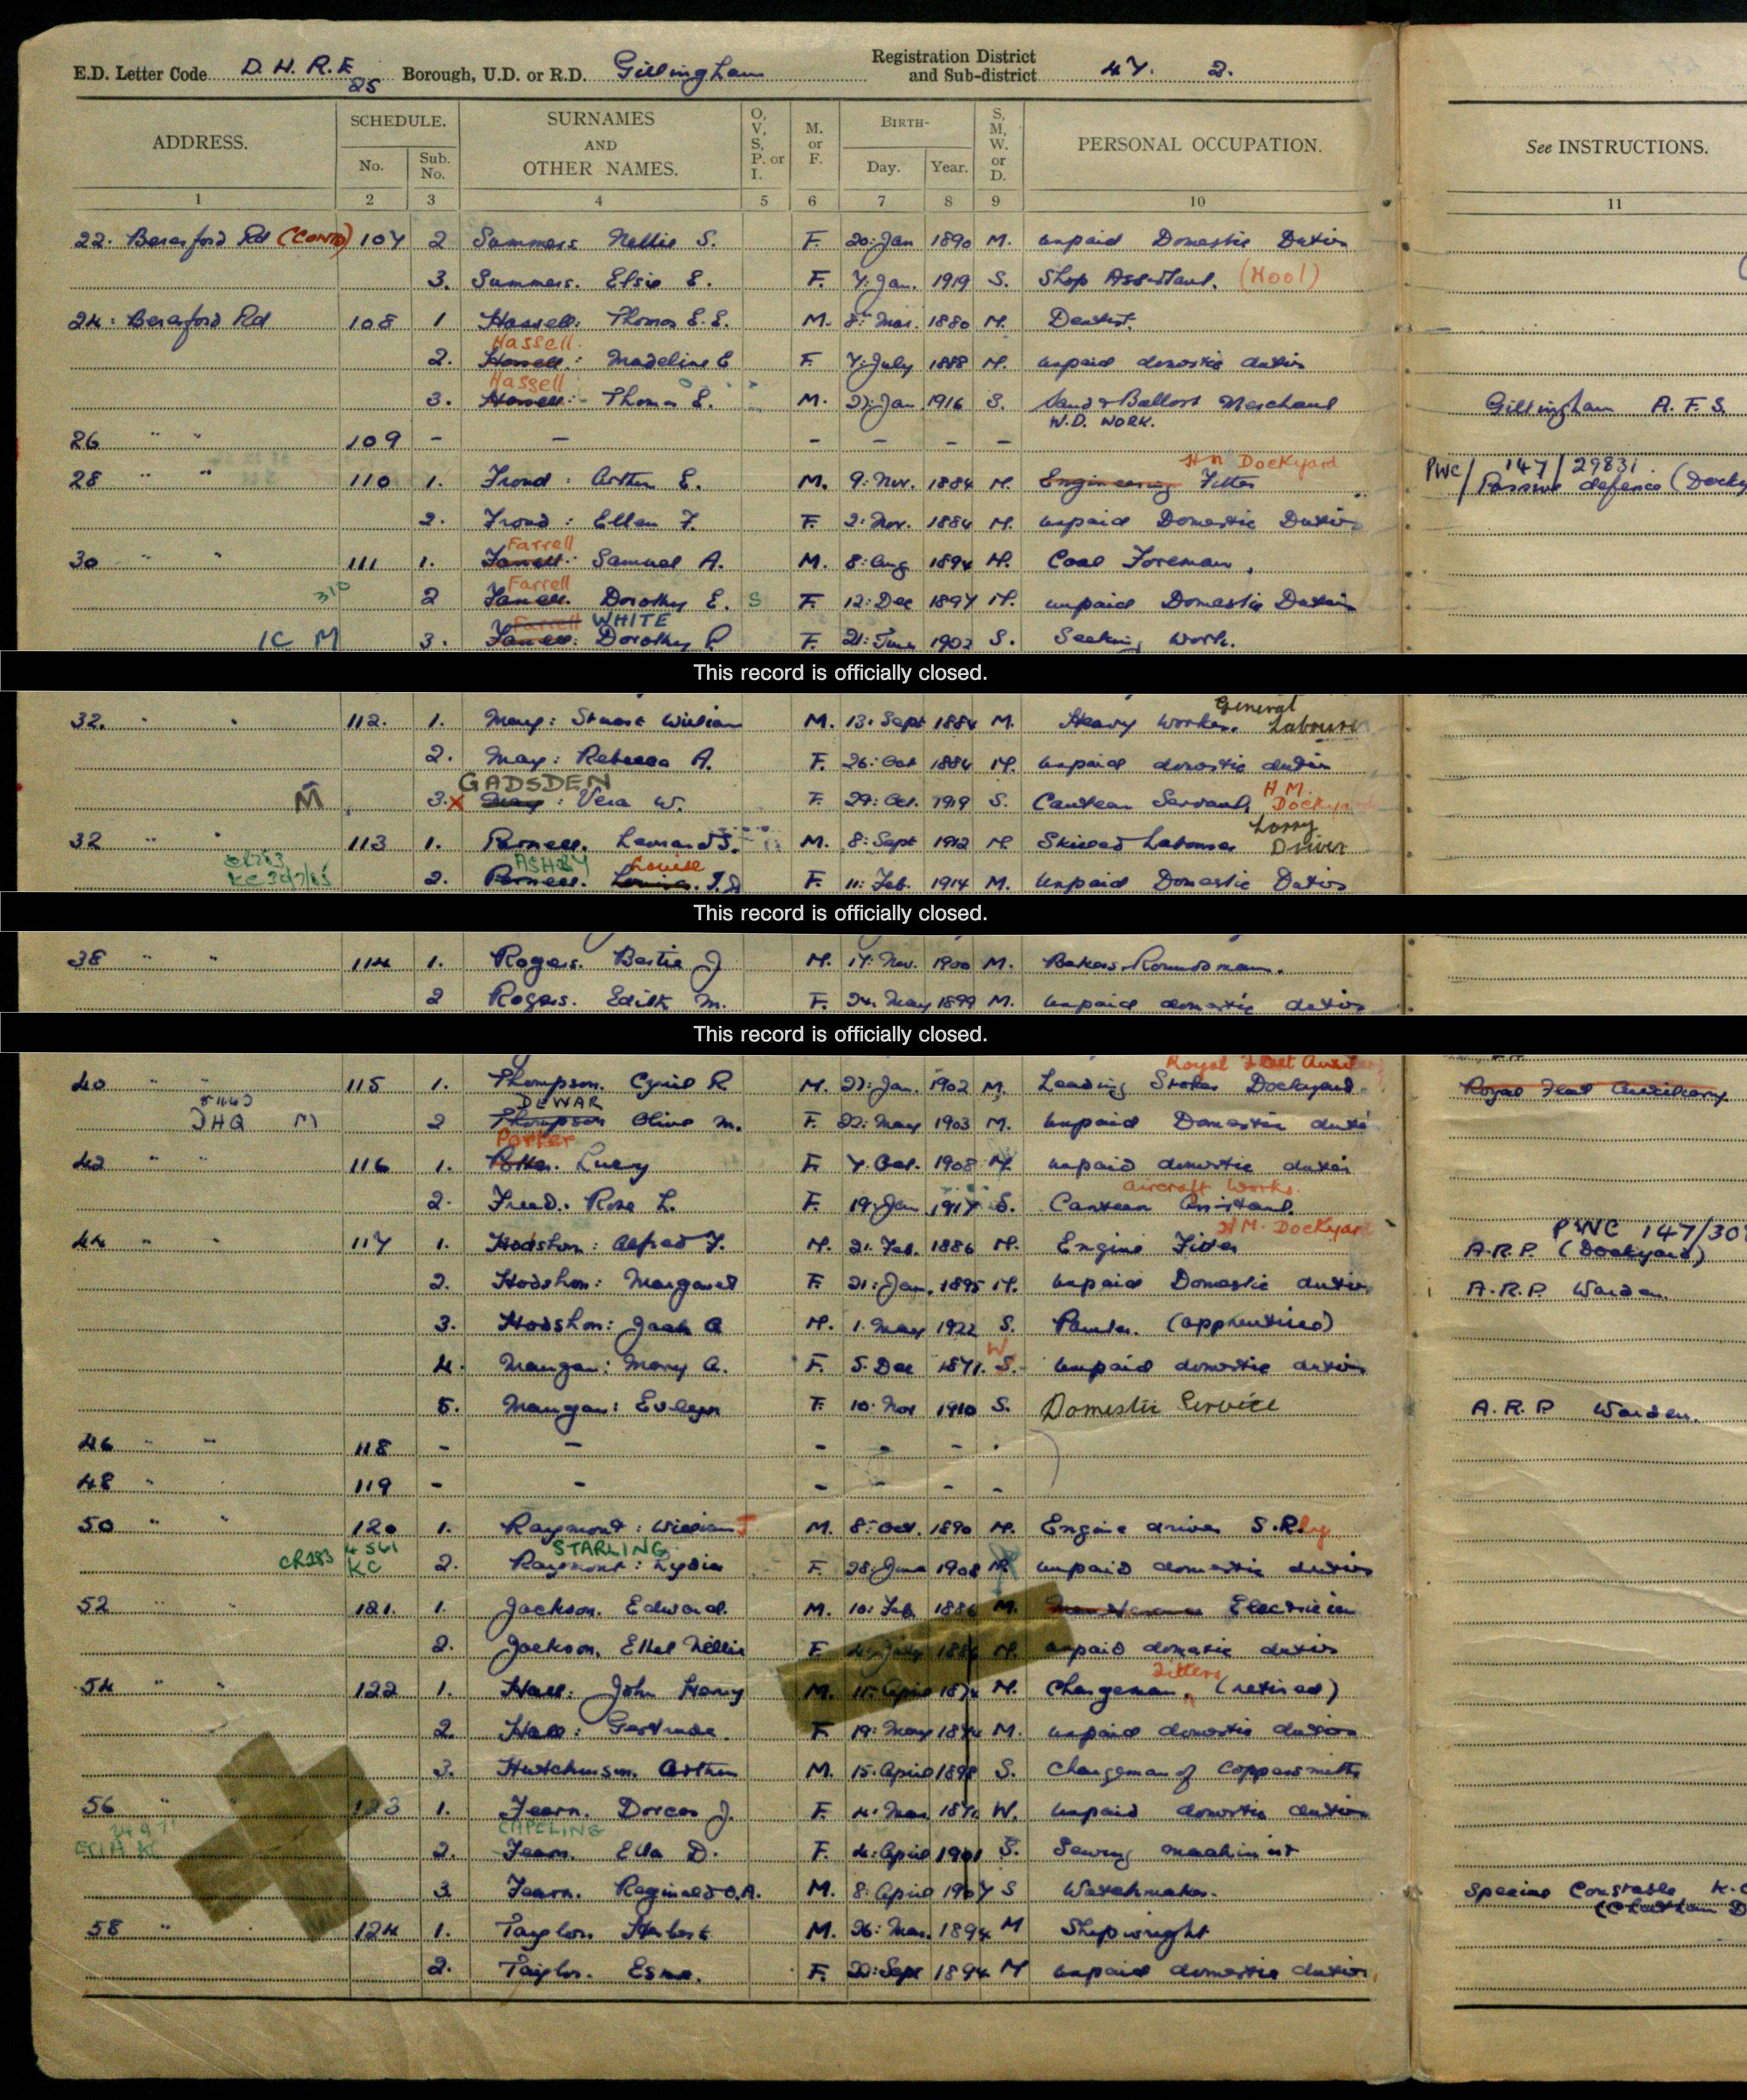 E.D. Letter Code D. H. R. E 25 Borough, U.D. or R.D. Gillingham Registration District and Sub-district 47. 2.
ADDRESS. SCHEDULE. No. Sub. No. SURNAMES AND OTHER NAMES. O, V, S, P. or I. M. or F. BIRTH- Day. Year. S, M, W. or D. PERSONAL OCCUPATION. See INSTRUCTIONS.
1 2 3 4 5 6 7 8 9 10 11
22. Beresford Rd (Contd) 107 2 Summers Nellie S. F. 20: Jan 1890 M. unpaid Domestic Duties
3. Summers. Elsie E. F. 7: Jan. 1919 S. Shop Assistant. (Wool)
24. Beresford Rd 108 1 Hassell: Thomas E. E. M. 8: Mar. 1880 M. Dentist.
Hassell.
2. Madeline E F. 7: July 1888 M. unpaid domestic duties
Hassell
3. Thomas E. M. 27: Jan 1916 S. Sand & Ballast Merchant Gillingham A. F. S.
W.D. WORK.
26 " " 109 - - - - - -
HM Dockyard
28 " " 110 1. Froud: Arthur E. M. 9: Nov. 1884 M. Engineering Fitter PWC/147/29831. Passive defence
2. Froud: Ellen F. F. 2: Nov. 1884 M. unpaid Domestic Duties
Farrell
30 " " 111 1. Samuel A. M. 8: Aug 1894 M. Coal Foreman.
Farrell
310 2 Dorothy E. S F. 12: Dec 1897 M. unpaid Domestic Duties
Farrell WHITE
IC M 3. Dorothy P. F. 21: June 1902 S. Seeking Work.
This record is officially closed.
32. " " 112. 1. May: Stuart William M. 13: Sept 1884 M. Heavy Worker. General Labourer
2. May: Rebecca A. F. 26: Oct 1884 M. unpaid domestic duties
GADSDEN
M 3. X May: Vera W. F. 29: Oct. 1919 S. Canteen Servant. H.M. Dockyard
32 " " 113 1. Parnell. Leonard S. M. 8: Sept 1912 M Skilled Labourer Lorry Driver
ASHBY Louise
2. Parnell. F. 11: Feb. 1914 M. Unpaid Domestic Duties
This record is officially closed.
38 " " 114 1. Rogers. Bertie J M. 17: Nov. 1900 M. Bakers Roundsman.
2 Rogers. Edith M. F. 24. May 1899 M. unpaid domestic duties
This record is officially closed.
Royal Fleet Auxiliary
40 " " 115 1. Thompson. Cyril R. M. 27: Jan. 1902 M. Leading Stoker Dockyard. Royal Fleet Auxiliary
DEWAR
JHQ M 2 Thompson Olive M. F. 22: May 1903 M. unpaid Domestic duties
Porter
42 " " 116 1. Lucy F. 7. Oct. 1908 M. unpaid domestic duties
Aircraft Works.
2. Freed. Rose L. F. 19: Jan 1917 S. Canteen Assistant.
H.M. Dockyard PWC 147/30
44 " " 117 1. Hodshon: Alfred F. M. 21. Feb. 1886 M. Engine Fitter A.R.P. (Dockyard)
2. Hodshon: Margaret F. 21: Jan. 1895 M. unpaid Domestic duties A.R.P. Warden.
3. Hodshon: Jack A M. 1. May 1922 S. (apprenticed)
W
4. Mangan: Mary A. F. 5. Dec 1871. S. unpaid domestic duties
5. Mangan: Evelyn F. 10. Nov 1910 S. Domestic Service A.R.P Warden.
46 " " 118 - - - - - -
48 " " 119 - - - - - -
50 " " 120 1. Raymont: William J M. 8: Oct. 1890 M. Engine driver S. Rly
STARLING
CR283 4561 KC 2. Raymont: Lydia F. 28: June 1908 M. unpaid domestic duties
52 " " 121. 1. Jackson. Edward. M. 10: Feb 1886 M. Electrician
2. Jackson, Ethel Nellie F. 4: July 1886 M. unpaid domestic duties
Fitters
54 " " 122 1. Hall: John Henry M. 15: April 1874 M. Chargeman, (retired)
2. Hall: Gertrude. F. 19: May 1874 M. unpaid domestic duties
3. Hutchinson. Arthur M. 15: April 1898 S. Chargeman of Coppersmiths
56 " " 123 1. Fearn. Dorcas J. F. 4: Mar. 187 W. unpaid domestic duties
CAPELING
2. Fearn. Ella D. F. 4: April 1901 S. Sewing machinist
3 Fearn. Reginald O.A. M. 8: April 1907 S Watchmaker. Special Constable K.C
(Chatham D
58 " " 124 1. Taylor. Herbert M. 26: Mar. 1894 M Shipwright
2. Taylor. Esme. F. 20: Sept 1894 M unpaid domestic duties